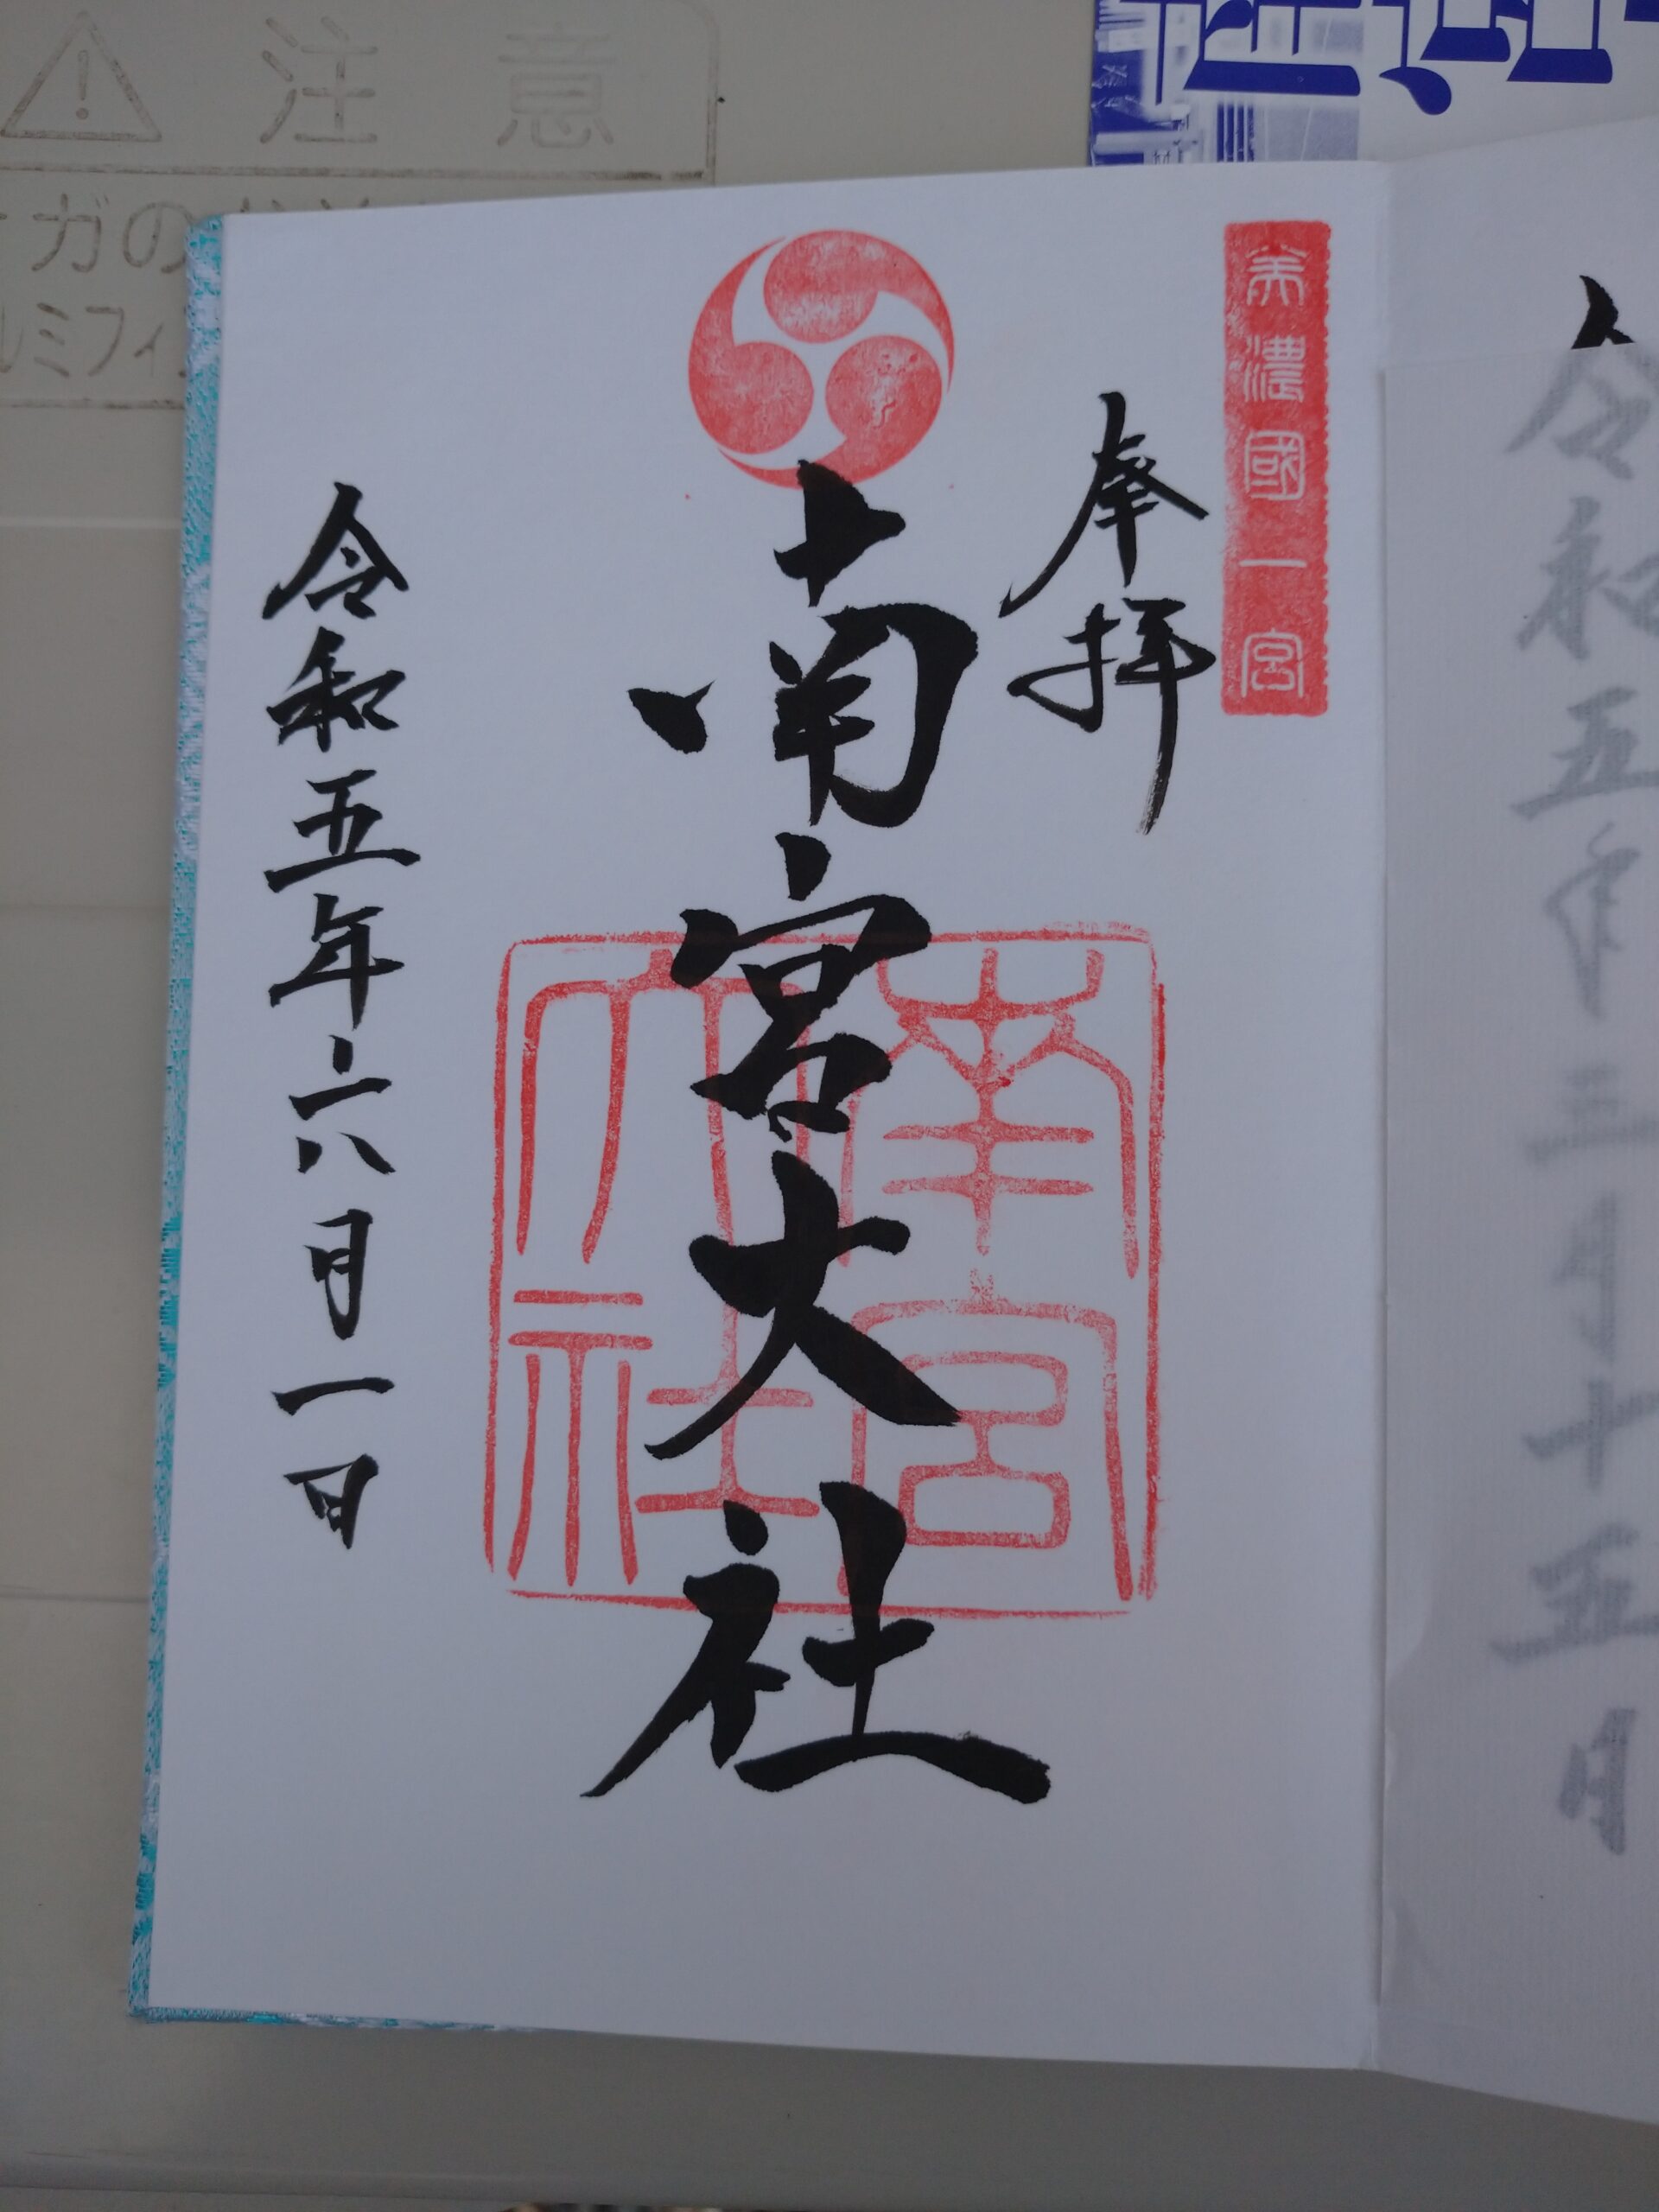 注意
ガの
ルミフィ
令和五年三月十五日
美濃國一宮
奉拝
南宮大社
南宮大社
令和五年六月一日